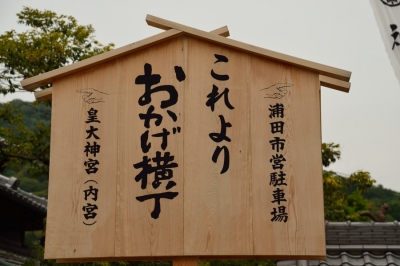 浦田市営駐車場
これより
おかげ横丁
皇大神宮(内宮)